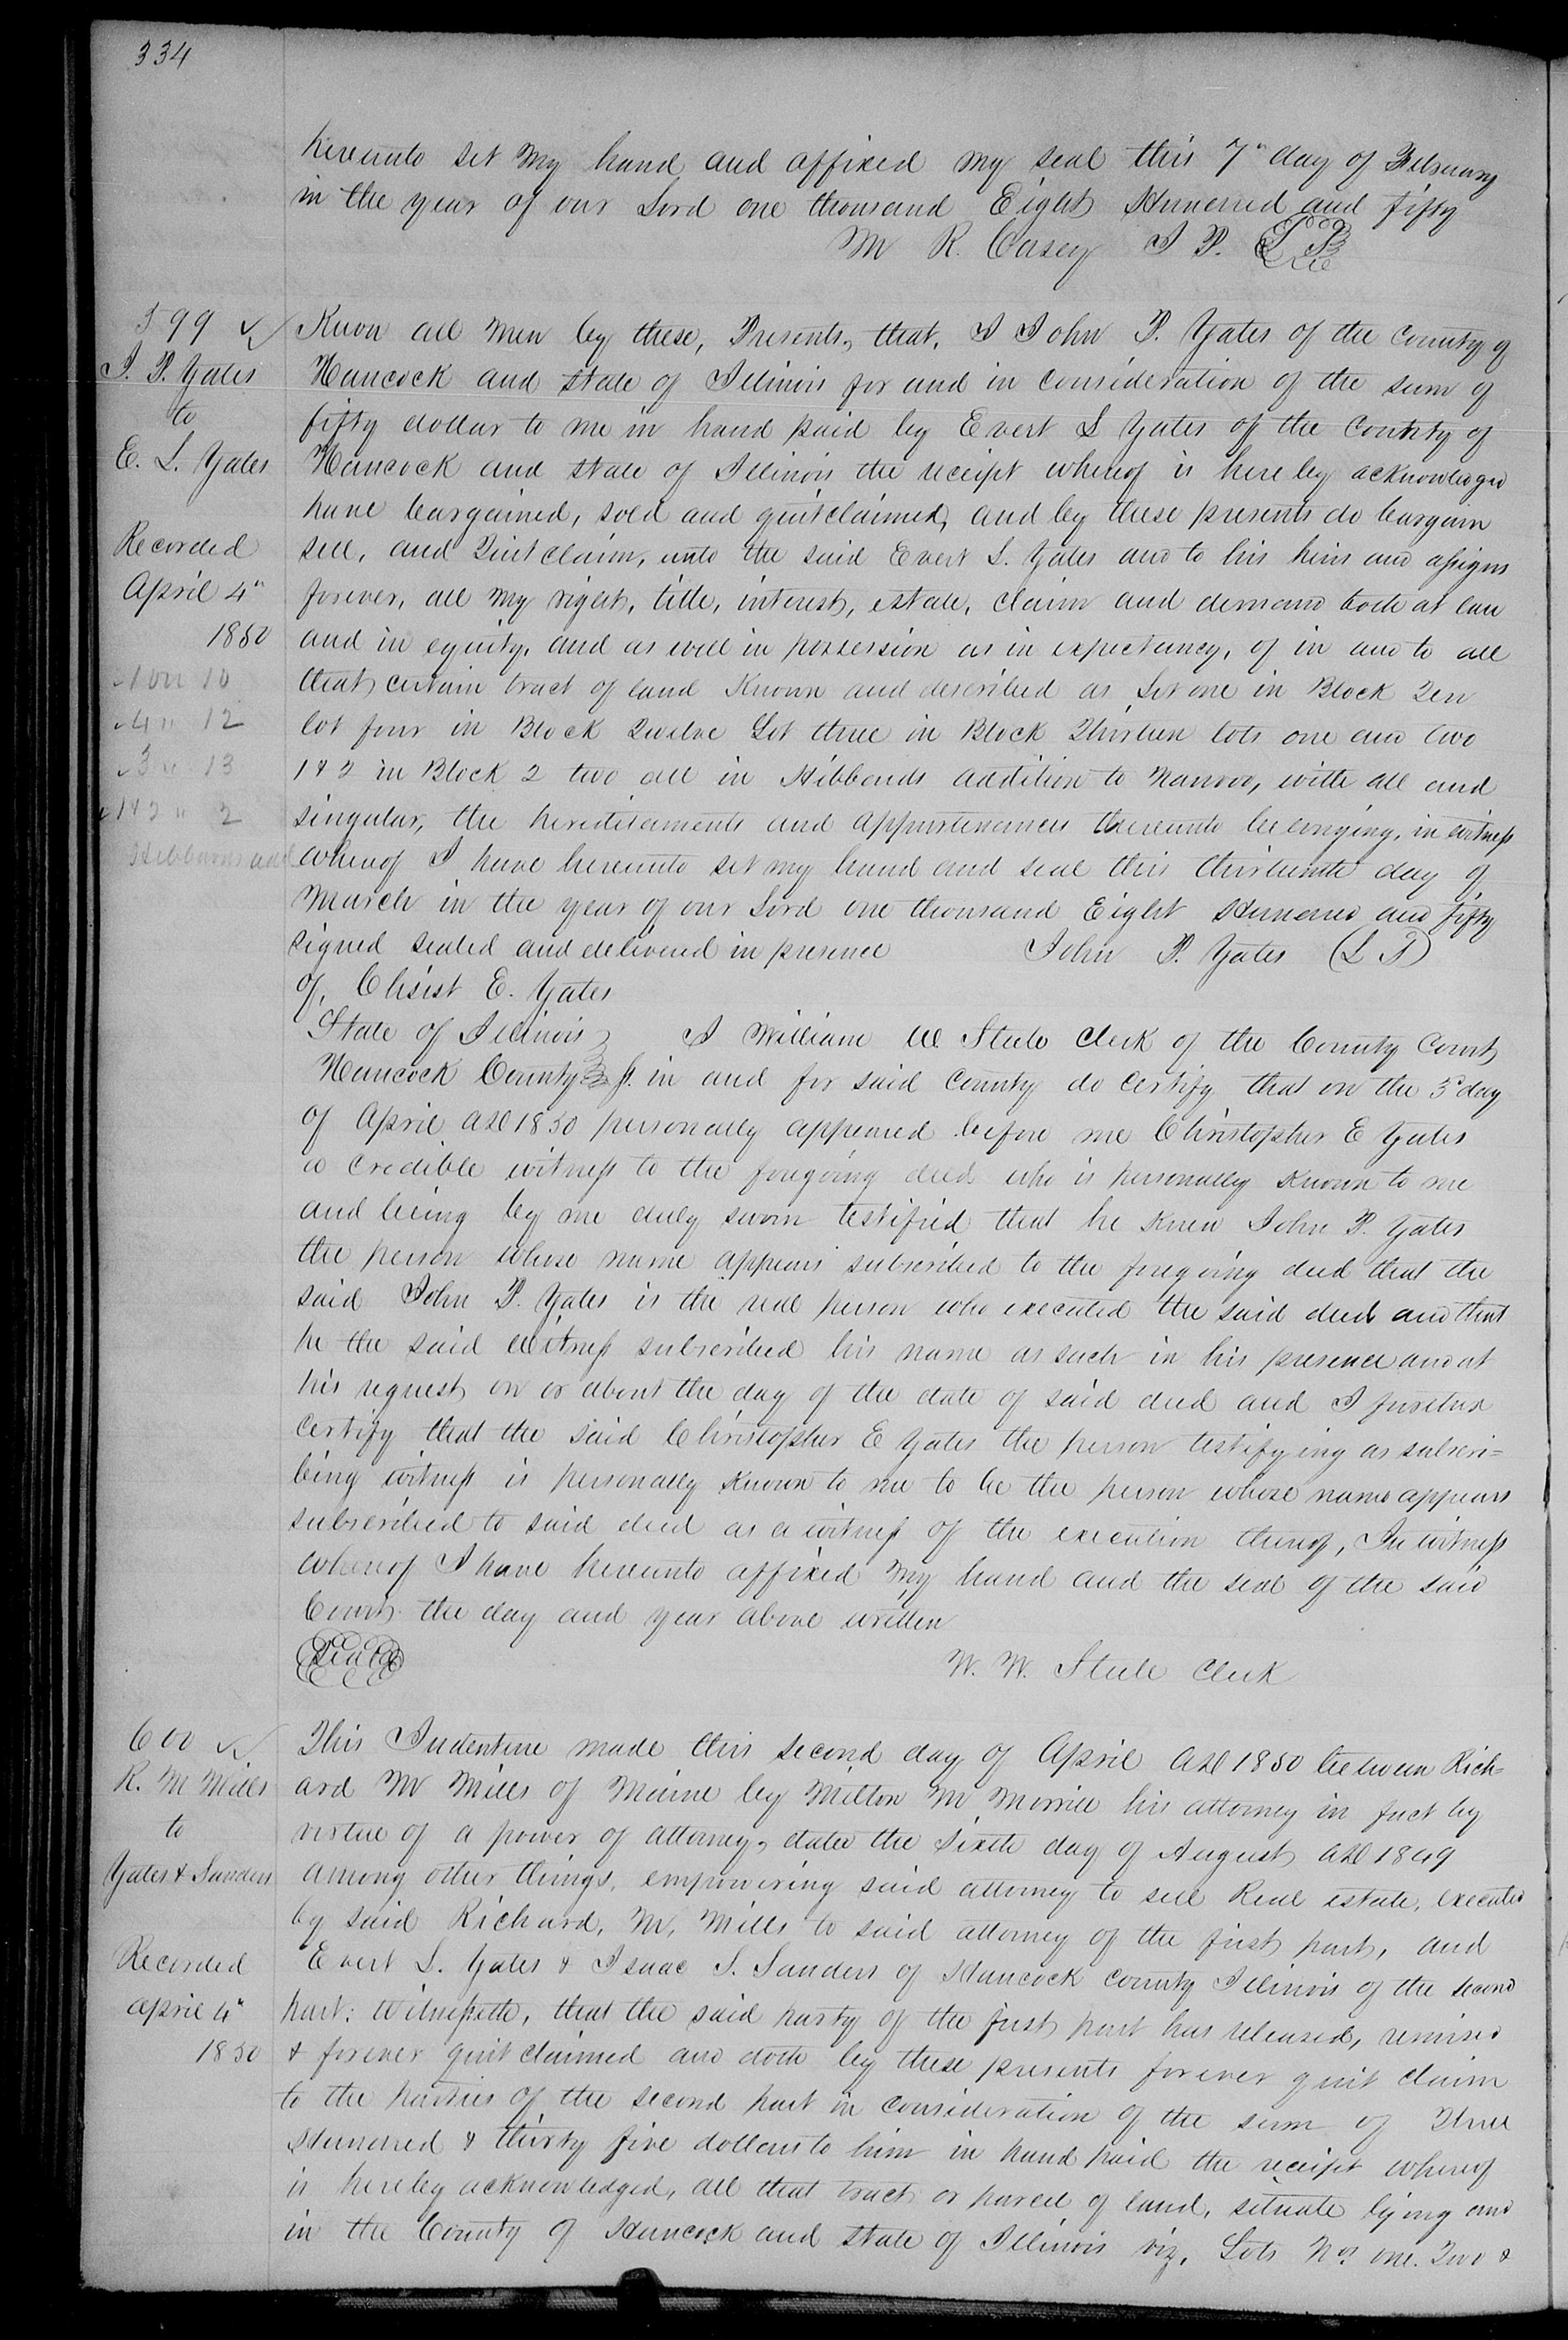 334
hereunto set my hand and affixed my seal this 7" day of February
in the year of our Lord one thousand Eight Hundred and fifty
M R. Casey J P. L S
599
J. P. Yates
to
E. L. Yates
Recorded
April 4"
1850
1 on 10
4 " 12
3 " 13
1&2 " 2
Hibbards add
Know all men by these, Presents, that, I John P. Yates of the county of
Hancock and state of Illinois for and in consideration of the sum of
fifty dollar to me in hand paid by Evert L Yates of the County of
Hancock and state of Illinois the receipt whereof is hereby acknowledged
have bargained, sold and quitclaimed, and by these presents do bargain
sell, and Quit claim, unto the said Evert L. Yates and to his heirs and assigns
forever, all my right, title, interest, estate, claim and demand both at law
and in equity, and as well in possession as in expectancy, of in and to all
that certain tract of land Known and described as Lot one in Block Ten
lot four in Block Twelve Lot three in Block Thirteen lots one and two
1 & 2 in Block 2 two all in Hibbards addition to Nauvoo, with all and
singular, the hereditaments and appurtenances thereunto belonging, in witness
whereof I have hereunto set my hand and seal this thirteenth day of
March in the year of our Lord one thousand Eight Hundred and fifty
signed sealed and delivered in presence John P. Yates (L S)
of, Christ E. Yates
State of Illinois I William W. Steele Clerk of the County Court
Hancock County in and for said County do certify that on the 3d day
of April AD 1850 personally appeared before me Christopher E Yates
a credible witness to the foregoing deed who is personally Known to me
and being by me duly sworn testified that he Knew John P. Yates
the person whose name appears subscribed to the foregoing deed that the
said John P. Yates is the real person who executed the said deed and that
he the said witness subscribed his name as such in his presence and at
his request on or about the day of the date of said deed and I further
certify that the said Christopher E Yates the person testifying as subscri=
bing witness is personally Known to me to be the person whose name appears
subscribed to said deed as a witness of the execution thereof, In witness
whereof I have hereunto affixed my hand and the seal of the said
Court the day and year above written
Seal W. W. Steele Clerk
600
R. M Mills
to
Yates & Sanders
Recorded
April 4"
1850
This Indenture made this second day of April AD 1850 between Rich-
ard M Mills of Maine by Milton M Morrill his attorney in fact by
virtue of a power of attorney, dated the Sixth day of August AD 1849
among other things, empowering said attorney to sell Real estate, executed
by said Richard, M, Mills to said attorney of the first part, and
Evert L. Yates & Isaac S. Sanders of Hancock county Illinois of the second
part: Witnesseth, that the said party of the first part has released, remised
& forever quit claimed and doth by these presents forever quit claim
to the parties of the second part in consideration of the sum of Three
Hundred & thirty five dollars to him in hand paid the receipt whereof
is hereby acknowledged, all that tract or parcel of land, situate lying and
in the County of Hancock and state of Illinois viz, Lots Nos. one. Two &